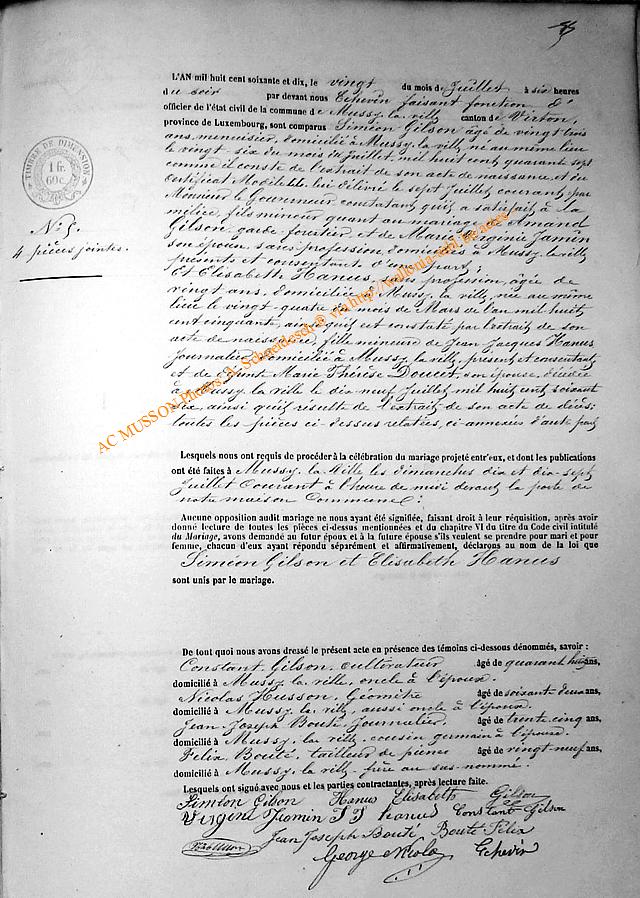 L'AN mil huit cent soixante et dix, le vingt du mois de Juillet à six heures
du soir par devant nous Echevin faisant fonction d'
officier de l'état civil de la commune de Mussy la ville canton de Virton,
province de Luxembourg, sont comparus Siméon Gilson âgé de vingt trois
ans, menuisier, domicilié à Mussy la ville, né au même lieu
le vingt-six du mois de Juillet mil huit cent quarante sept
comme il conste de l'extrait de son acte de naissance, et du
certificat Modèle lui délivré le sept Juillet courant par
Monsieur le Gouverneur constatant qu'il a satisfait à la
milice, fils mineur quant au mariage de Amand
Gilson garde forestier, et de Marie Virginie Jamin
son épouse, sans profession, domiciliés à Mussy la ville
présents et consentant d'une part;
Et Elisabeth Hanus, sans profession, âgée de
vingt ans, domiciliée à Mussy la ville, née au même
lieu le vingt-quatre du mois de Mars de l'an mil huit
cent cinquante, ainsi qu'il est constaté par l'extrait de son
acte de naissance, fille mineure de Jean Jacques Hanus
Journalier, domicilié à Mussy la ville, présent et consentant,
et de défunte Marie Thérèse Doucet, son épouse, décédée
à Mussy la ville le dix neuf Juillet mil huit cent soixante
dix, ainsi qu'il résulte de l'extrait de son acte de décès:
toutes les pièces ci-dessus relatées, ci-annexées d'autre part
TIMBRE DE DIMENSION
1 fr.
60 c.
N° 5.
4 pièces jointes.
AC MUSSON Photos A. Schaedgen © via http://wallonia-asbl.be/actes
Lesquels nous ont requis de procéder à la célébration du mariage projeté entr'eux, et dont les publications
ont été faites à Mussy la Ville les dimanches dix et dix-sept
Juillet Courant à l'heure de midi devant la porte de
notre maison Commune:
Aucune opposition audit mariage ne nous ayant été signifiée, faisant droit à leur réquisition, après avoir
donné lecture de toutes les pièces ci-dessus mentionnées et du chapitre VI du titre du Code civil intitulé
du Mariage, avons demandé au futur époux et à la future épouse s'ils veulent se prendre pour mari et pour
femme, chacun d'eux ayant répondu séparément et affirmativement, déclarons au nom de la loi que
Siméon Gilson et Elisabeth Hanus
sont unis par le mariage.
De tout quoi nous avons dressé le présent acte en présence des témoins ci-dessous dénommés, savoir :
Constant Gilson, cultivateur âgé de quarant huit ans,
domicilié à Mussy la ville, oncle à l'époux.
Nicolas Husson, Géomètre âgé de soixante deux ans,
domicilié à Mussy la ville, aussi oncle à l'époux.
Jean Joseph Bouté, Journalier, âgé de trente cinq ans,
domicilié à Mussy la ville, cousin germain à l'épouse.
Félix Bouté, tailleur de pierre âgé de vingt-neuf ans,
domicilié à Mussy la ville frère au sus-nommé.
Lesquels ont signé avec nous et les parties contractantes, après lecture faite.
Siméon Gilson Hanus Elisabeth Gilson
Virginie Jamin J J hanus Constant Gilson
Jean Joseph Bouté Bouté Félix
George Nicolas Echevin